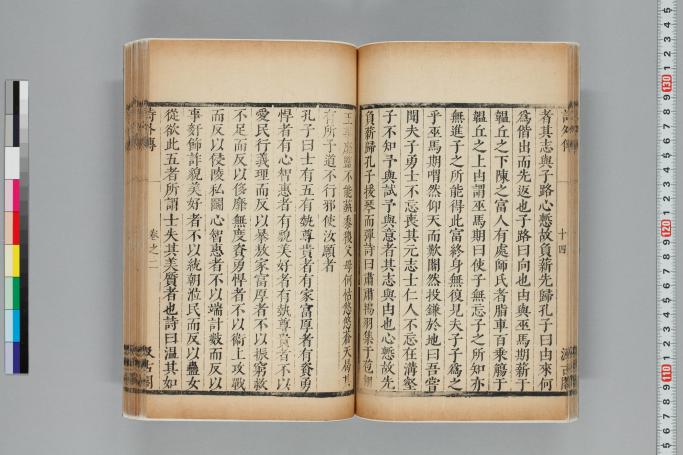 詩外傳 十四 汲古閣
者其志與子路心慙故負薪先歸孔子曰由來何
爲偕出而先返也子路曰向也由與巫馬期薪于
韞丘之下陳之富人有處師氏者脂車百乘觴于
韞丘之上由謂巫馬期曰使子無忘子之所知亦
無進子之所能得此富終身無復見夫子子爲之
乎巫馬期喟然仰天而歎闟然投鎌於地曰吾嘗
聞夫子勇士不忘喪其元志士仁人不忘在溝壑
子不知予與試予與意者其志與由也心慙故先
負薪歸孔子援琴而彈詩曰肅肅鴇羽集于苞栩
王事靡盬不能蓺黍稷父母何怙悠悠蒼天曷其
有所予道不行邪使汝願者
孔子曰士有五有埶尊貴者有家富厚者有資勇
悍者有心智惠者有貌美好者有埶尊貴者不以
愛民行義理而反以暴敖家富厚者不以振窮救
不足而反以侈靡無度資勇悍者不以衞上攻戰
而反以侵陵私鬭心智惠者不以端計數而反以
事姦飾詐貌美好者不以統朝涖民而反以蠱女
從欲此五者所謂士失其美質者也詩曰溫其如
詩外傳 卷之二 汲古閣